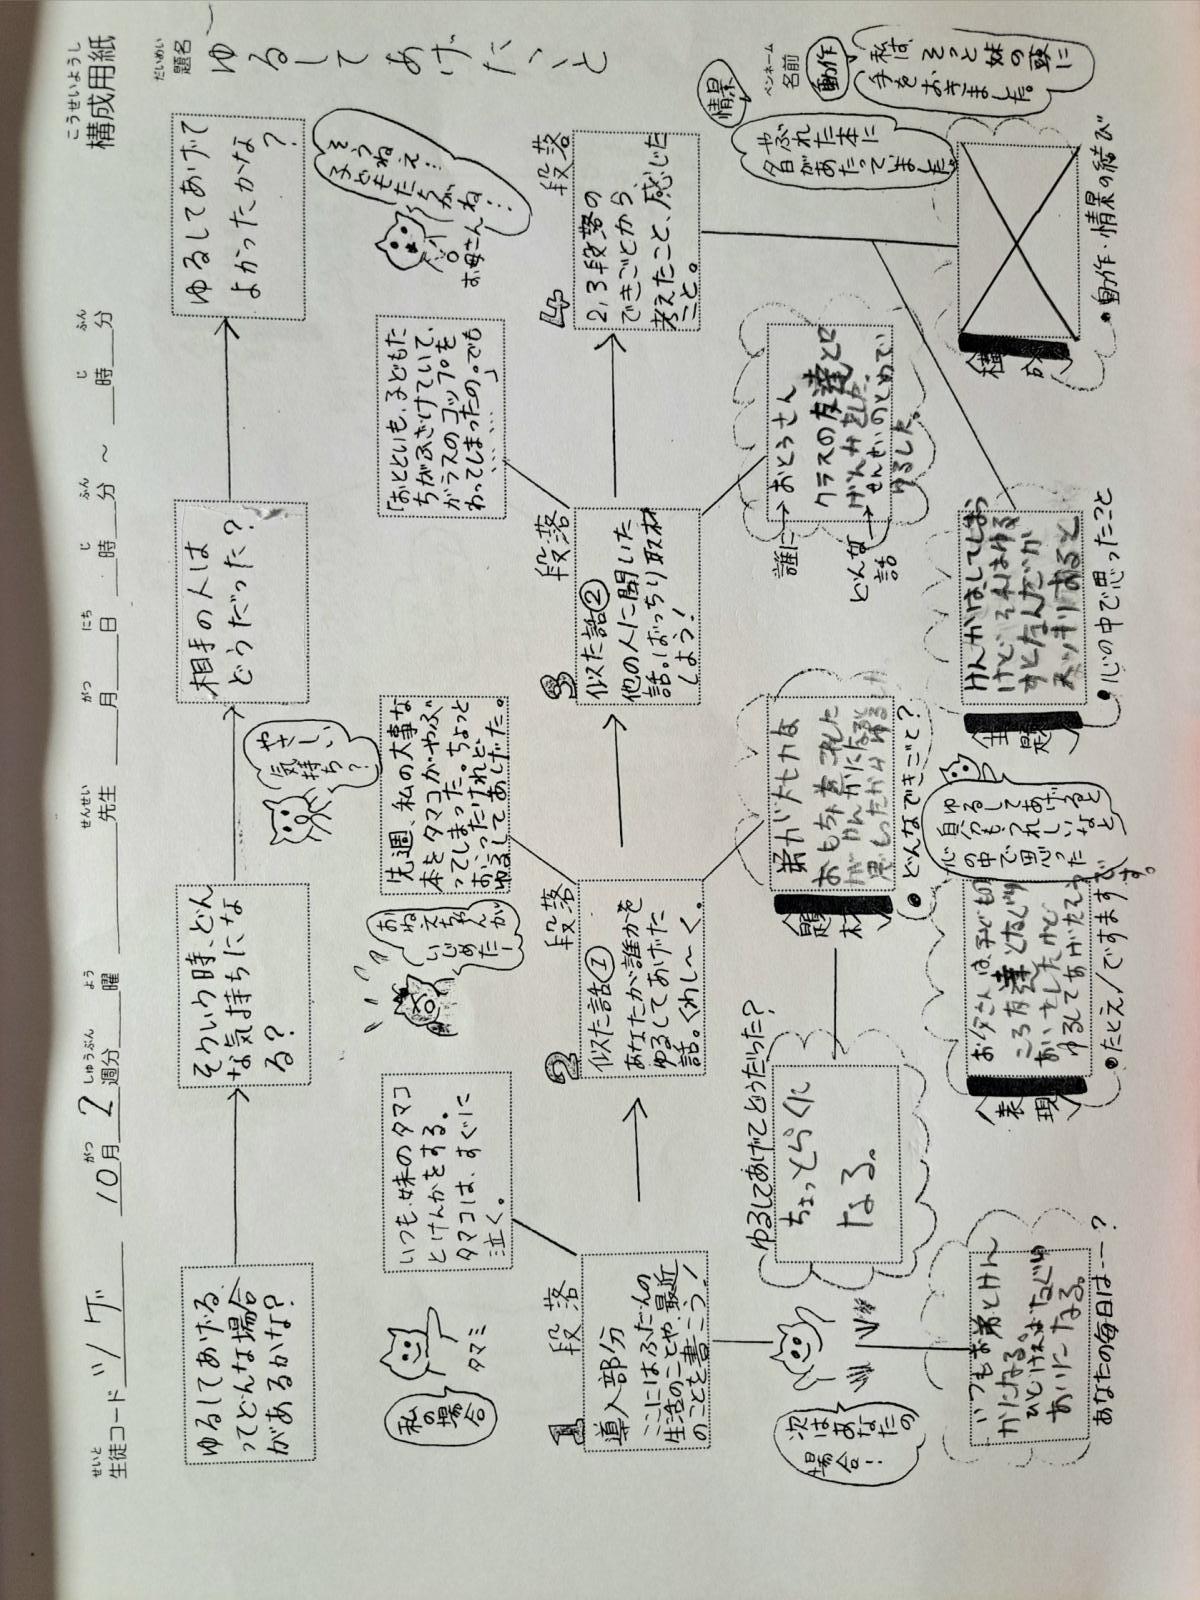 こうせいようし
構成用紙
せいと
生徒コード ツゲ
がつ しゅうぶん よう
10月2週分 曜
せんせい
先生
がつ にち じ ふん じ ふん
月 日 時 分 ～ 時 分
だいめい
題名 ゆるしてあげたこと
ペンネーム
名前
ゆるしてあげる。
ってどんな場合
があるかな?
そういう時、どん
な気持ちにな
る?
やさしい
気持ち?
相手の人は
どうだった?
ゆるしてあげて
よかったかな
?
そうねえ!
子どもたちが
ね!…
お母さんね
私の
場合
タマミ
いつも、妹のタマコ
とけんかをする。
タマコは、すぐに
泣く。
おねえちゃんが
いじめたー!
先週、私の大事な
本をタマコがやぶ
ってしまった。ちょっと
おこったけれど、
ゆるしてあげた。
「おとといも、子どもた
ちがふざけていて、
ガラスのコップを
わってしまったの。でも
……」
1 段落
導入部分
ここにはふだんの
生活のことや、最近
のことを書こう!
2 段落
似た話①
あなたが誰かを
ゆるしてあげた
話。くわし～く。
3 段落
似た話②
他の人に聞いた
話。ばっちり取材
しよう!
4 段落
2,3段落の
できごとから
考えたこと、感じた
こと。
情景
やぶれた本に
夕日があたっていました。
動作
私は、そっと妹の頭に
手をおきました。
次はあなたの
場合!
ゆるしてあげてどうだった?
ちょっとらくに
なる。
題材
弟が大せつな
おもちゃをこわした
●どんなできごと?
誰に→おとうさん
どんな話→
クラスの友達と口
げんかをした。
せんせいのとめでい
ゆるした。
いつもお弟とけん
かになる。
ひどければなぐり
あいになる。
あなたの毎日は……?
表現
お父さんは、子どもの
ころ友達となぐり
あいをしたけど
ゆるしてあげた
●たとえ/ですますです。
ゆるしてあげると
自分もうれしいなと
心の中で思った
主題
けんかはしてしまう
けど、それはゆる
すとなんだか
スッキリすると
●心の中で思ったこと
●動作・情景の結び